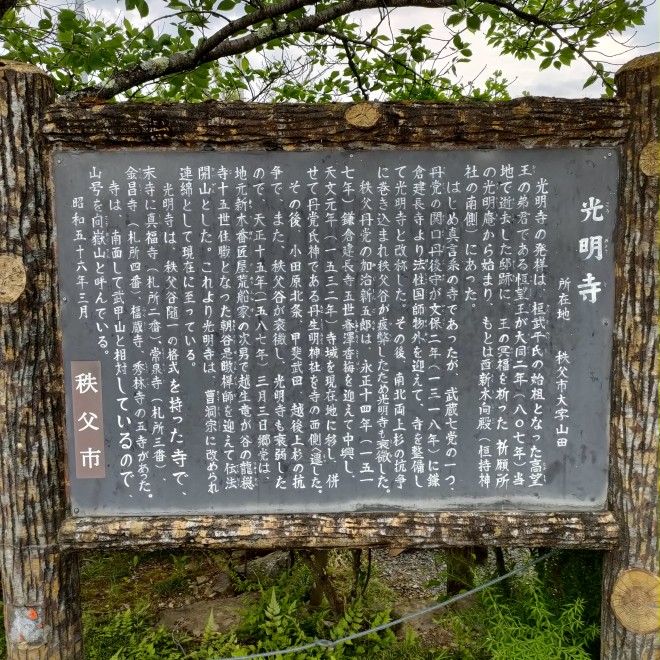 光明寺
こうみょうじ
所在地　秩父市大字山田
光明寺の発祥は、桓武平氏の始祖となった高望
王の弟君である恒望王が大同二年（八〇七年）当
地で逝去した邸跡に、王の冥福を祈った祈願所
の光明庵から始まり、もとは西新木向殿（恒持神
社の南側）にあった。
はじめ真言系の寺であったが、武蔵七党の一つ、
丹党の関口丹後守が文保二年（一三一八年）に鎌
倉建長寺より法柱国師物外を迎えて、寺を整備し
て光明寺と改称した。その後、南北両上杉の抗争
に巻き込まれ秩父谷が疲弊したため光明寺も衰微した。
秩父丹党の加治新五郎は、永正十四年（一五一
七年）鎌倉建長寺五世
を迎えて中興し、
天文元年（一五三二年）寺域を現在地に移し、併
せて丹党氏神である丹生明神社を寺の西側に遷した。
その後、小田原北条、甲斐武田、越後上杉の抗
争で、また、秩父谷が衰微し、光明寺も衰弱した
ので、天正十五年（一五八七年）三月三日郷党は、
地元新木番匠屋荒船家の次男で越生竜が谷の龍穏
寺十五世住職となった朝谷是暾禅師を迎えて伝法
開山とした。これより光明寺は、曹洞宗に改められ
連綿として現在に至っている。
光明寺は、秩父谷随一の格式を持った寺で、
末寺に真福寺（札所二番）、常泉寺（札所三番）、
金昌寺（札所四番）、福蔵寺、秀林寺の五寺があった。
寺は、南面して武甲山と相対しているので、
山号を向嶽山と呼んでいる。
昭和五十六年三月
秩父市